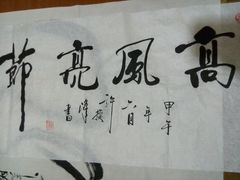 高風亮節
甲午
年
六月
許
書